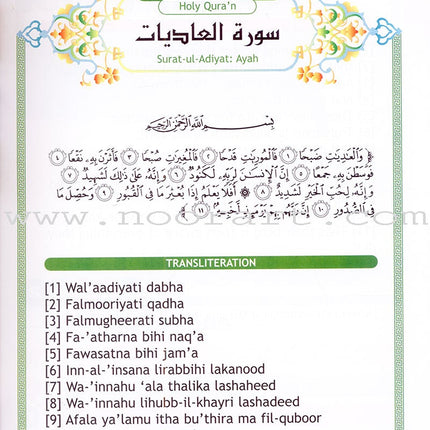 Holy Qura’n
سورة العاديات
Surat-ul-Adiyat: Ayah
بِسْمِ اللَّهِ الرَّحْمَٰنِ الرَّحِيمِ
﴿ وَالْعَٰدِيَٰتِ ضَبْحًا ١ فَالْمُورِيَٰتِ قَدْحًا ٢ فَالْمُغِيرَٰتِ صُبْحًا ٣ فَأَثَرْنَ بِهِۦ نَقْعًا ٤
فَوَسَطْنَ بِهِۦ جَمْعًا ٥ إِنَّ الْإِنسَٰنَ لِرَبِّهِۦ لَكَنُودٌ ٦ وَإِنَّهُۥ عَلَىٰ ذَٰلِكَ لَشَهِيدٌ ٧
وَإِنَّهُۥ لِحُبِّ الْخَيْرِ لَشَدِيدٌ ٨ ۞ أَفَلَا يَعْلَمُ إِذَا بُعْثِرَ مَا فِى الْقُبُورِ ٩ وَحُصِّلَ مَا
فِى الصُّدُورِ ١٠ إِنَّ رَبَّهُم بِهِمْ يَوْمَئِذٍ لَّخَبِيرٌ ١١ ﴾
www.nooraart.com
TRANSLITERATION
[1] Wal’aadiyati dabha
[2] Falmooriyati qadha
[3] Falmugheerati subha
[4] Fa-’atharna bihi naq’a
[5] Fawasatna bihi jam’a
[6] Inn-al-’insana lirabbihi lakanood
[7] Wa-’innahu ‘ala thalika lashaheed
[8] Wa-’innahu lihubb-il-khayri lashadeed
[9] Afala ya’lamu itha bu’thira ma fil-quboor